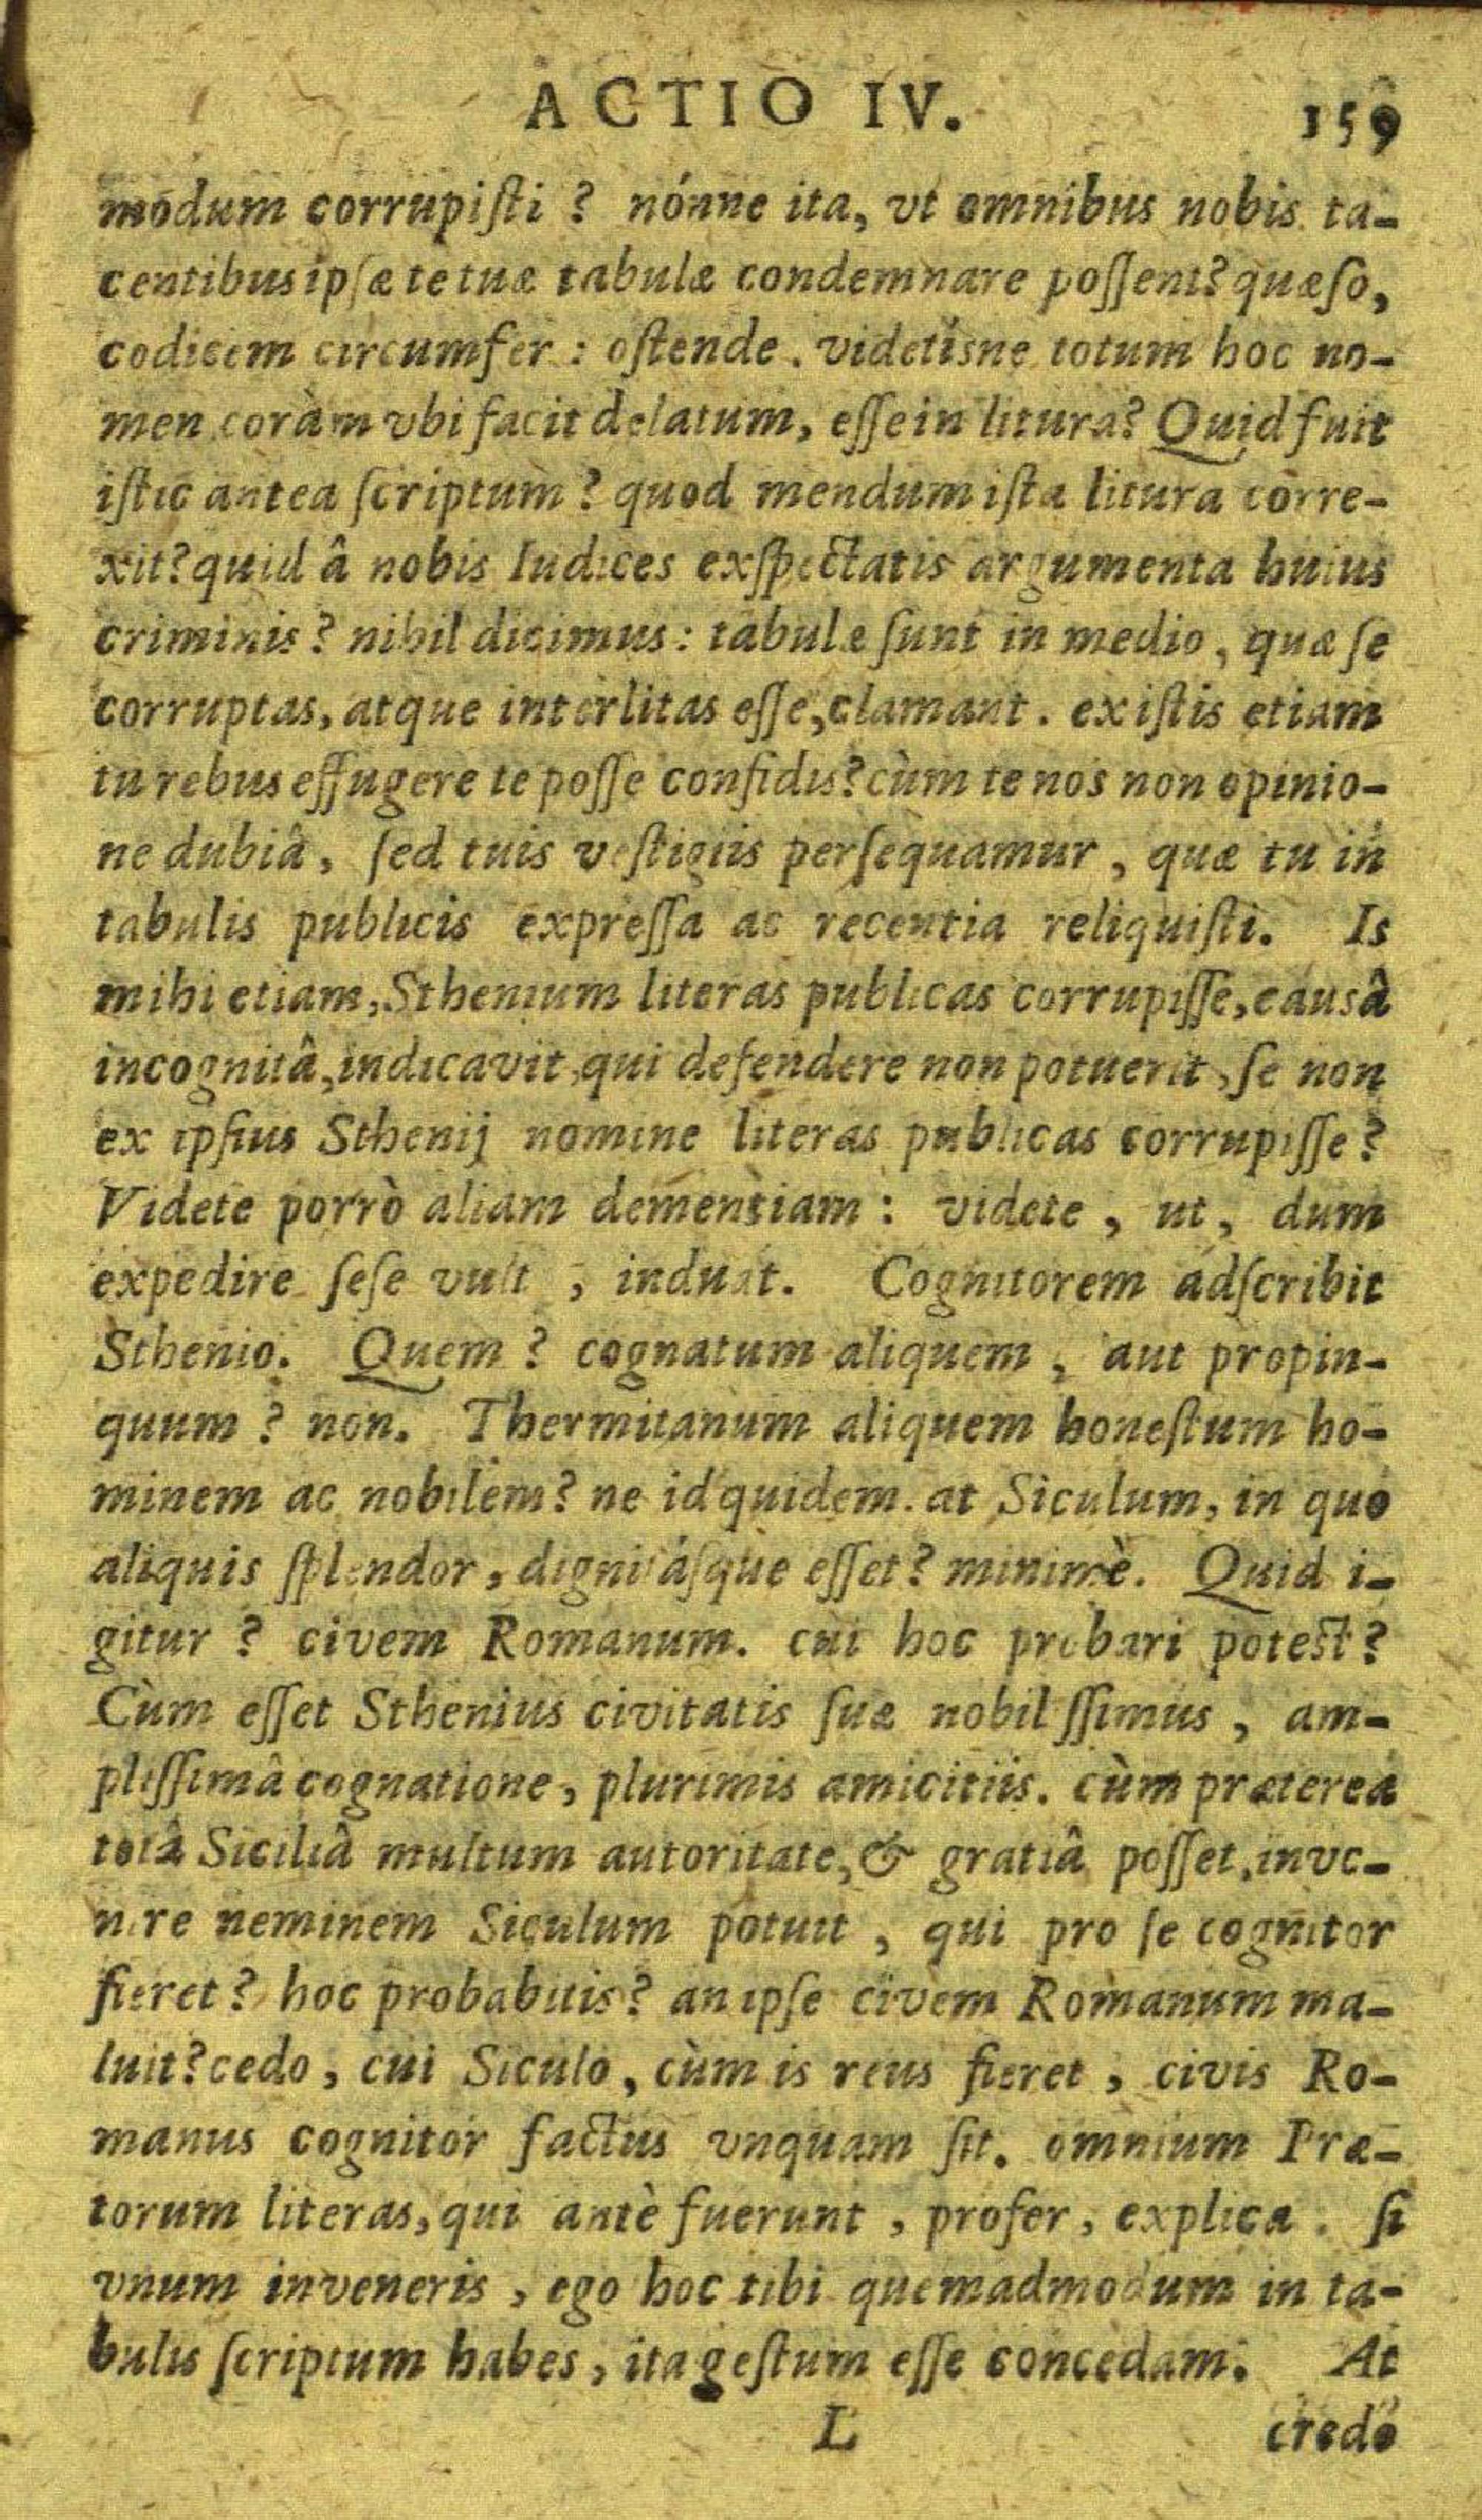 ACTIO IV. 159
modum corrupiſti ? nónne ita, vt omnibus nobis ta-
centibus ipſæ te tuæ tabulæ condemnare poſſent? quæſo,
codicem circumfer : oſtende . videtíſne totum hoc no-
men coràm vbi facit delatum, eſſe in litura? Quid fuit
iſtic antea ſcriptum ? quod mendum iſta litura corre-
xit? quid â nobis Iudices exſpectatis argumenta huius
criminis ? nihil dicimus : tabulæ ſunt in medio , quæ ſe
corruptas, atque interlitas eſſe, clamant . ex iſtis etiam
tu rebus effugere te poſſe confidis? cùm te nos non opinio-
ne dubiâ , ſed tuis veſtigiis perſequamur , quæ tu in
tabulis publicis expreſſa ac recentia reliquiſti. Is
mihi etiam, Sthenium literas publicas corrupiſſe, causâ
incognitâ, indicavit, qui defendere non potuerit, ſe non
ex ipſius Sthenij nomine literas publicas corrupiſſe ?
Videte porrò aliam dementiam : videte , ut , dum
expedire ſeſe vult , induat. Cognitorem adſcribit
Sthenio. Quem ? cognatum aliquem , aut propin-
quum ? non. Thermitanum aliquem honeſtum ho-
minem ac nobilem? ne id quidem. at Siculum, in quo
aliquis ſplendor, dignitáſque eſſet ? minimè. Quid i-
gitur ? civem Romanum. cui hoc probari potest ?
Cùm eſſet Sthenius civitatis ſuæ nobiliſſimus , am-
pliſſimâ cognatione, plurimis amicitiis. cùm præterea
totâ Siciliâ multum autoritate, & gratiâ poſſet, inve-
nire neminem Siculum potuit , qui pro ſe cognitor
fieret ? hoc probabitis ? an ipſe civem Romanum ma-
luit? cedo , cui Siculo , cùm is reus fieret , civis Ro-
manus cognitor factus vnquam ſit. omnium Præ-
torum literas, qui antè fuerunt , profer, explica . ſi
vnum inveneris , ego hoc tibi quemadmodum in ta-
bulis ſcriptum habes , ita geſtum eſſe concedam. At
L credo